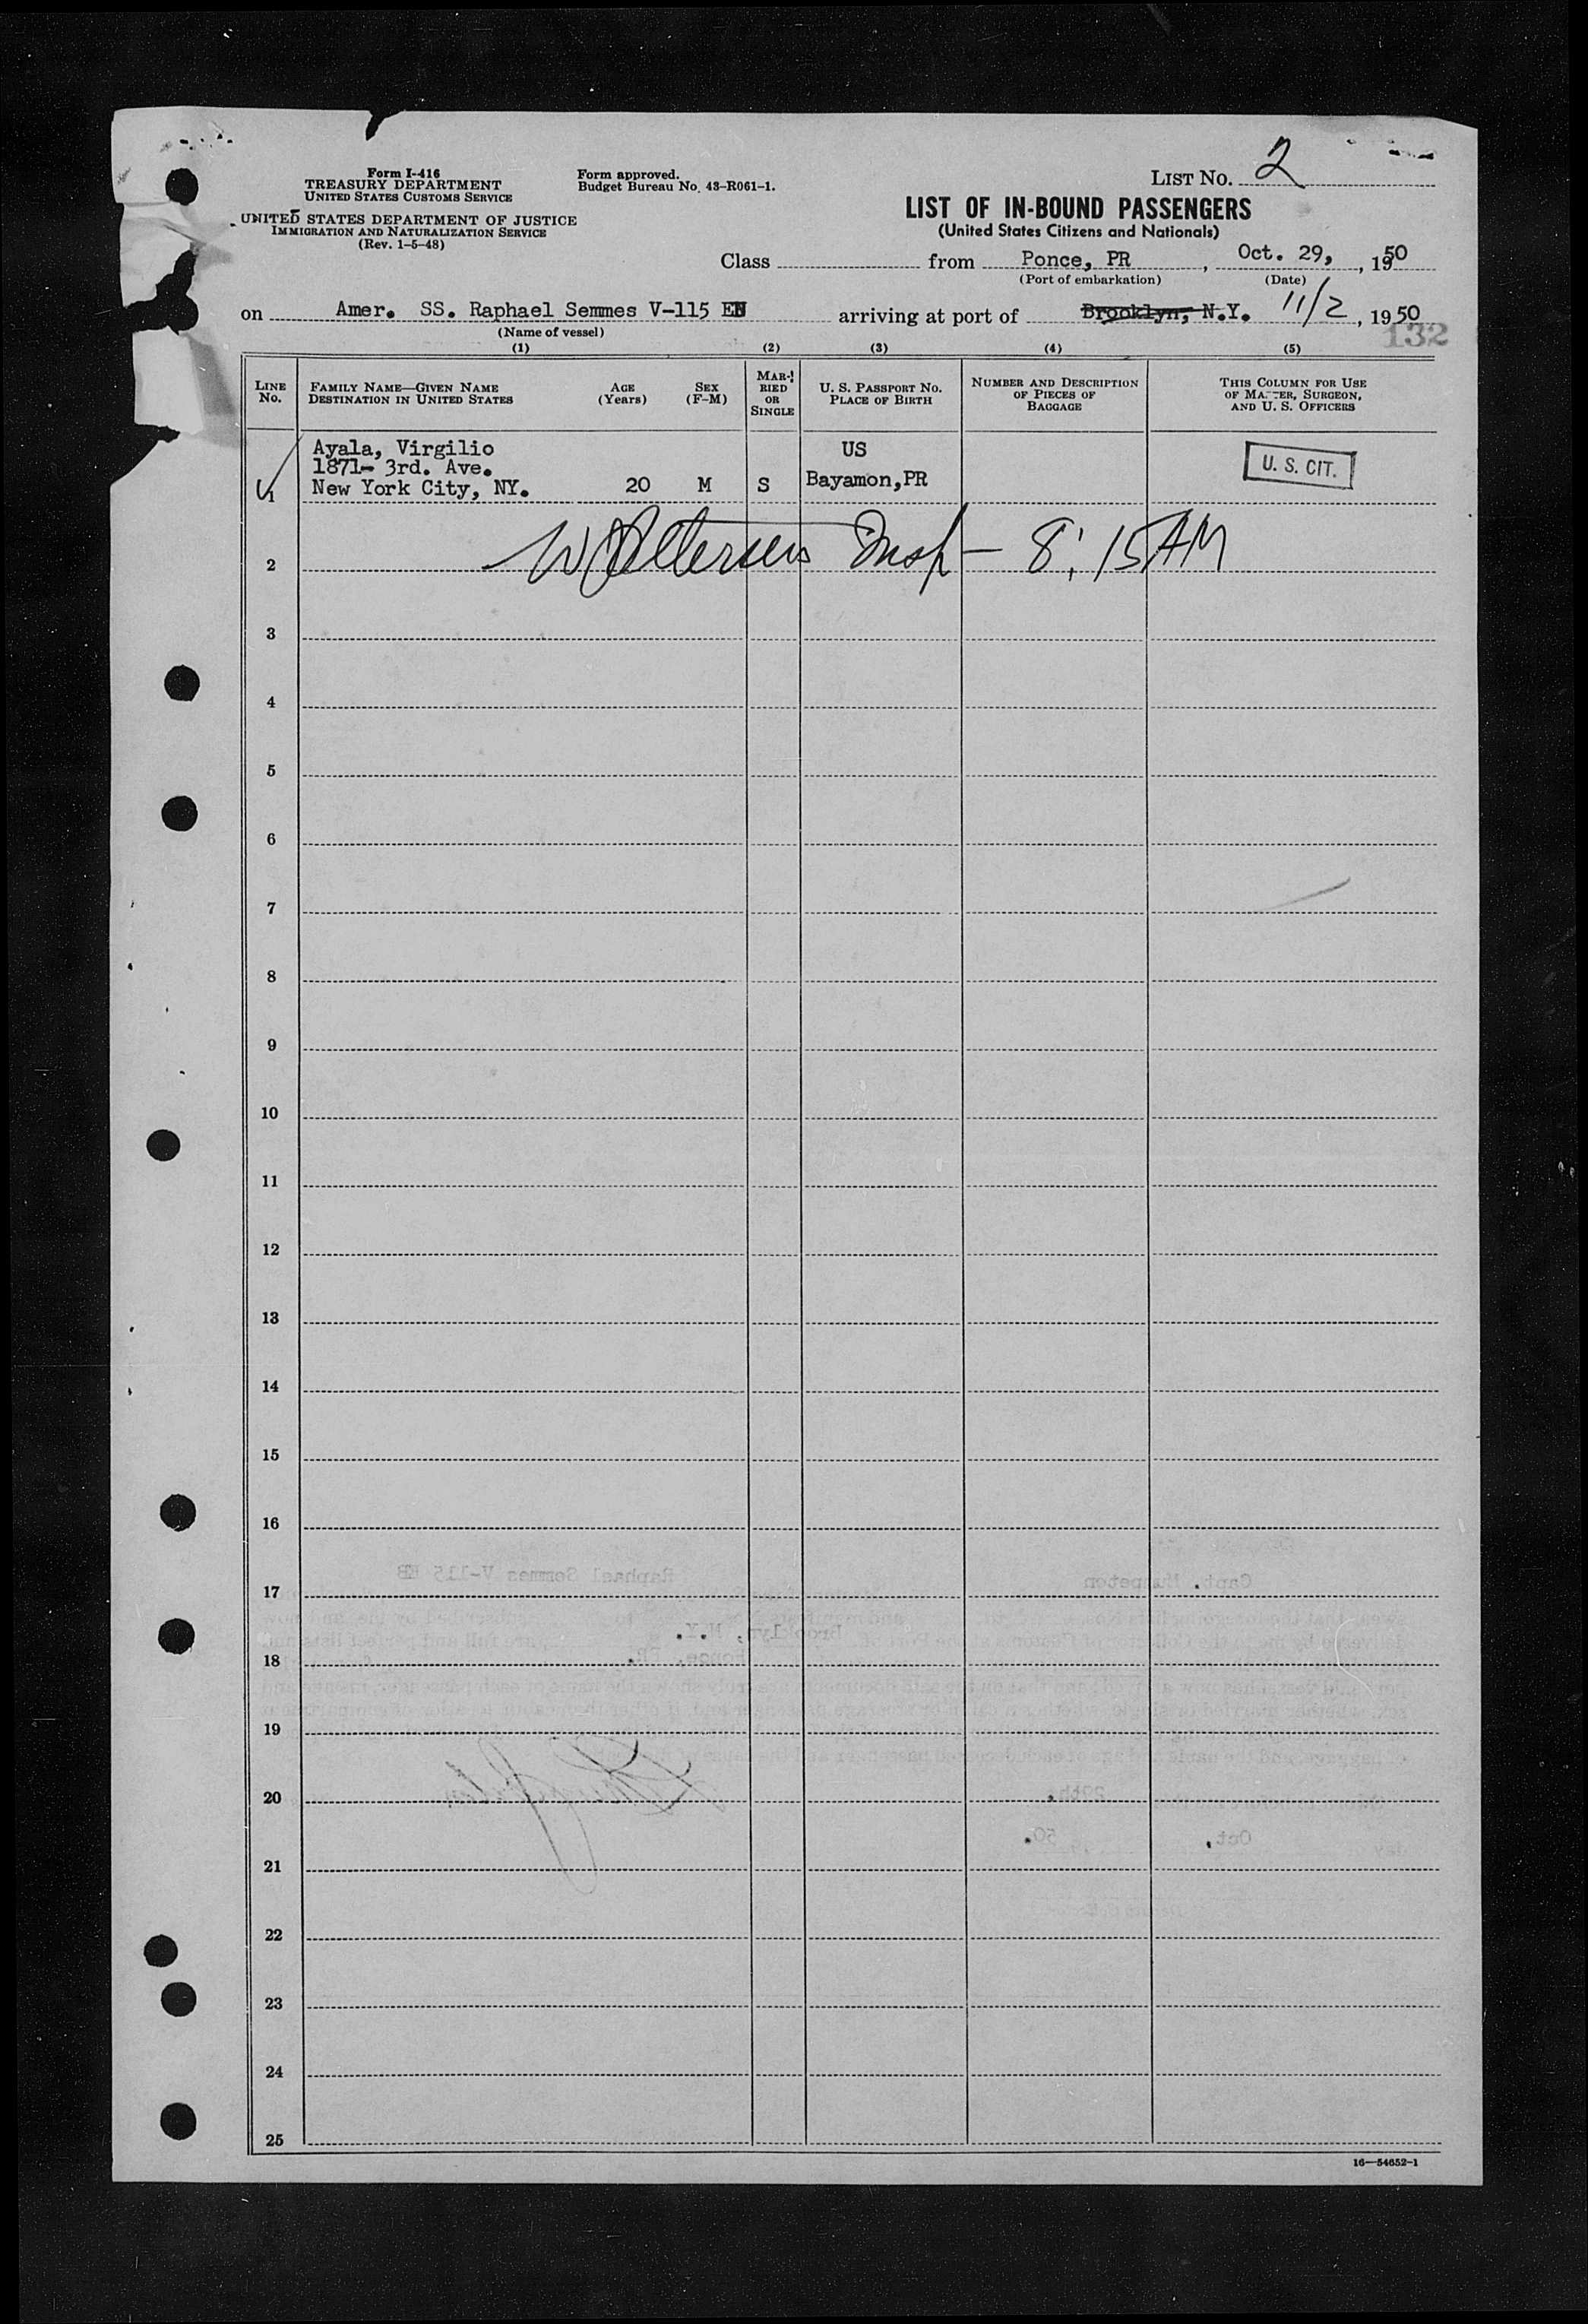 Form I-416
TREASURY DEPARTMENT
UNITED STATES CUSTOMS SERVICE
UNITED STATES DEPARTMENT OF JUSTICE
IMMIGRATION AND NATURALIZATION SERVICE
(Rev. 1-5-48)
Form approved.
Budget Bureau No. 43-R061-1.
LIST NO. 2
LIST OF IN-BOUND PASSENGERS
(United States Citizens and Nationals)
Class from Ponce, PR, Oct. 29, 1950
(Port of embarkation) (Date)
on Amer. SS. Raphael Semmes V-115 arriving at port of Brooklyn, N.Y. 11/2, 1950
(Name of vessel)
132
(1) (2) (3) (4) (5)
LINE No.
FAMILY NAME—GIVEN NAME
DESTINATION IN UNITED STATES
AGE (Years)
SEX (F-M)
MARRIED OR SINGLE
U. S. PASSPORT NO.
PLACE OF BIRTH
NUMBER AND DESCRIPTION
OF PIECES OF
BAGGAGE
THIS COLUMN FOR USE
OF MASTER, SURGEON,
AND U. S. OFFICERS
Ayala, Virgilio US
1871- 3rd. Ave. U. S. CIT.
1 New York City, NY. 20 M S Bayamon, PR
2 Insp — 8:15 AM
3
4
5
6
7
8
9
10
11
12
13
14
15
16
17
18
19
20
21
22
23
24
25
16—54652-1